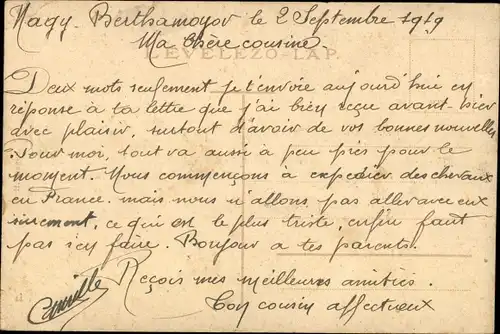 Nagy-Berthamoyov le 2 Septembre 1919
Ma chère cousine
LEVELEZŐ-LAP.
Deux mots seulement je t'envoie aujourd'hui en
réponse à ta lettre que j'ai bien reçu avant-hier
avec plaisir, surtout d'avoir de vos bonnes nouvelles
Pour moi, tout va aussi à peu près pour le
moment. Nous commençons à expédier des chevaux
en France. mais nous n'allons pas aller avec eux
surement, ce qui est le plus triste, enfin faut
pas s'en faire. Bonjour à tes parents.
Reçois mes meilleures amitiés.
Ton cousin affectueux
Camille